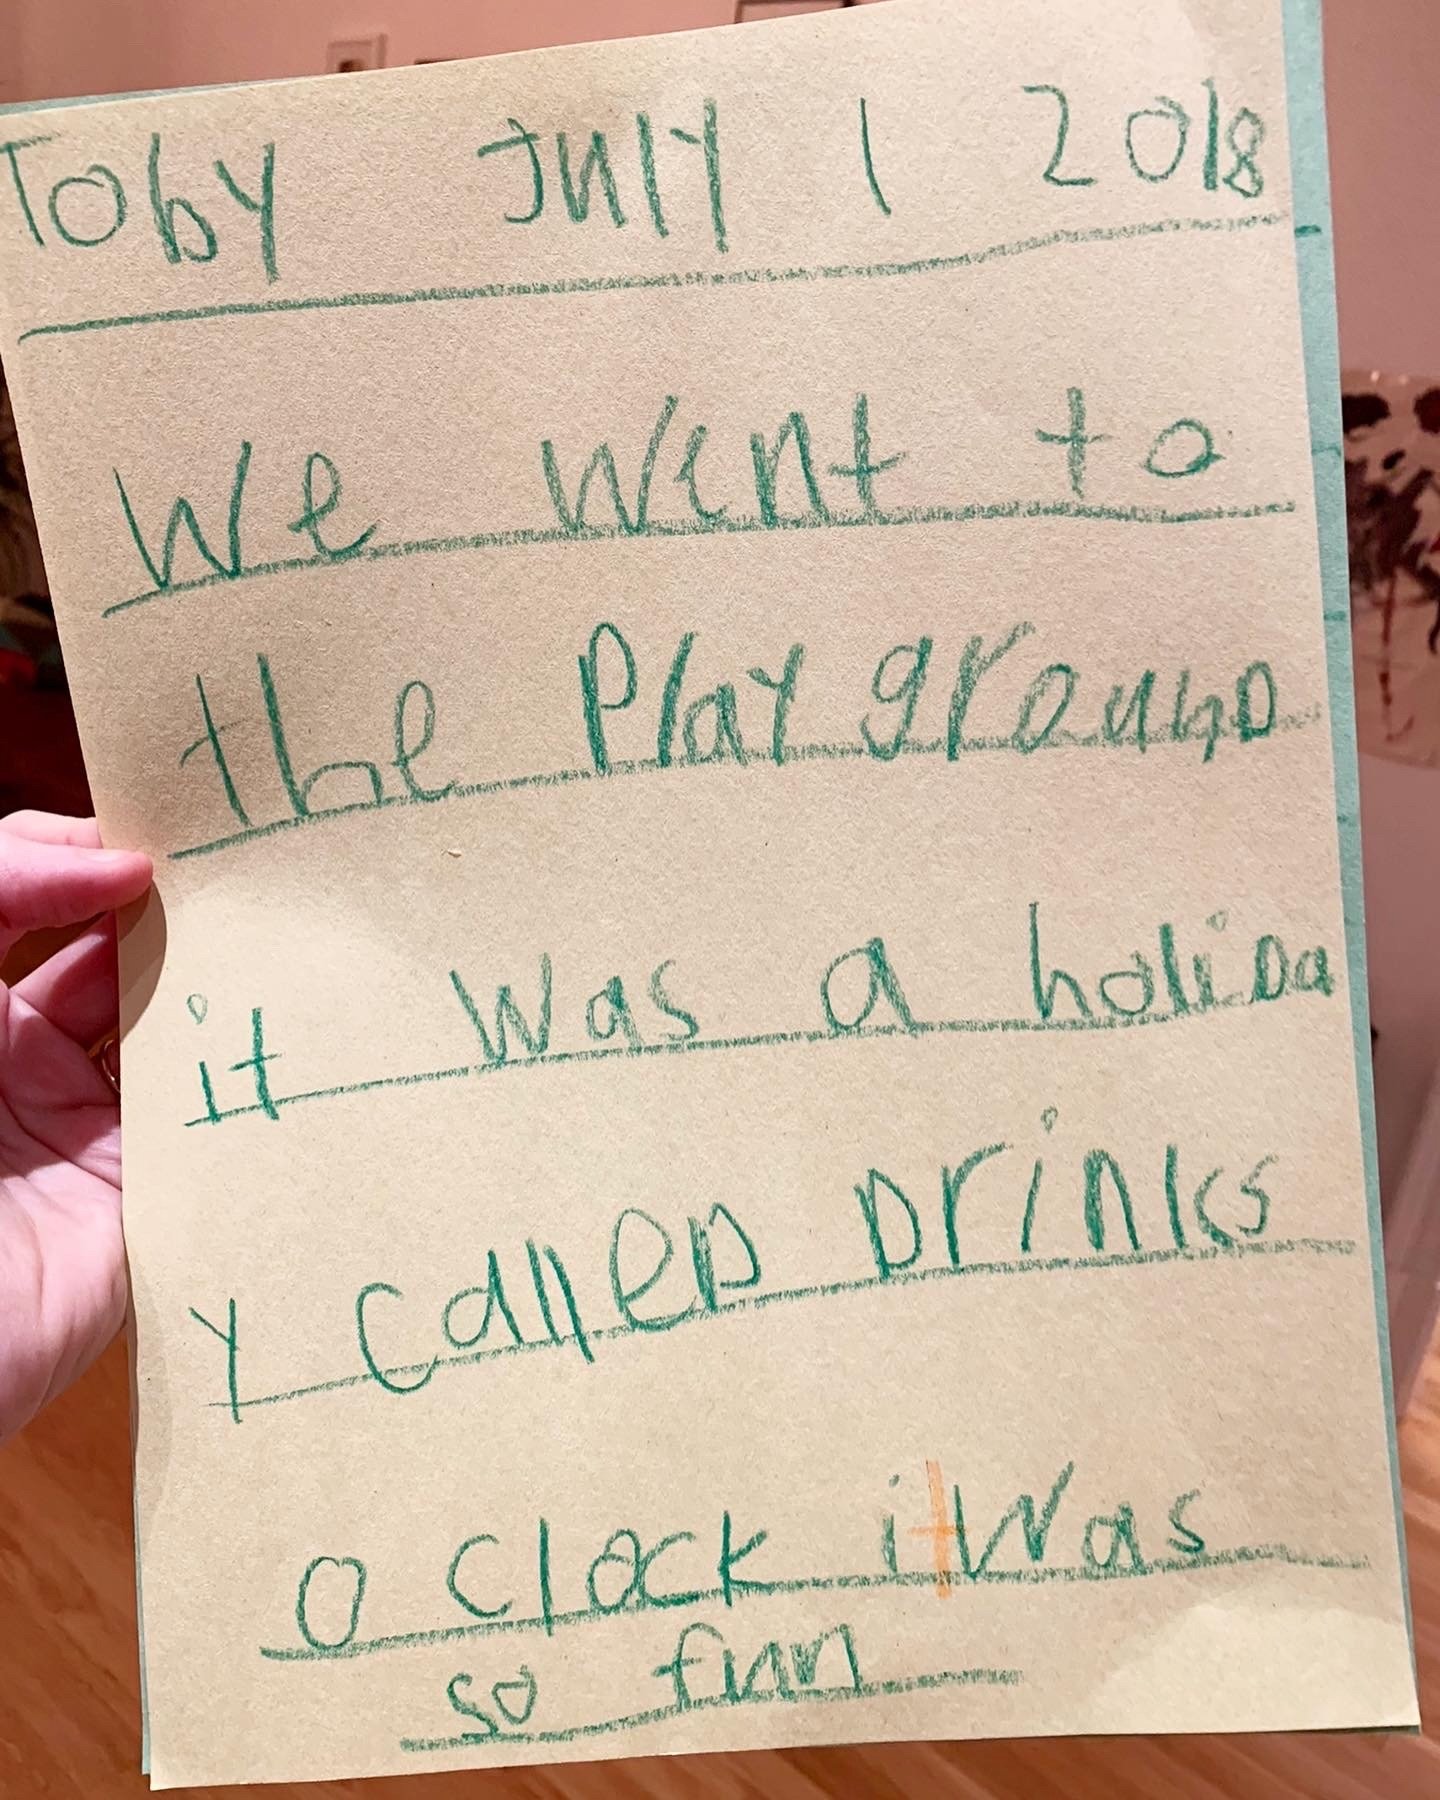 Toby July 1 2018
We went to
the Playground
it was a holida
y called Drinks
o clock it was
so fun